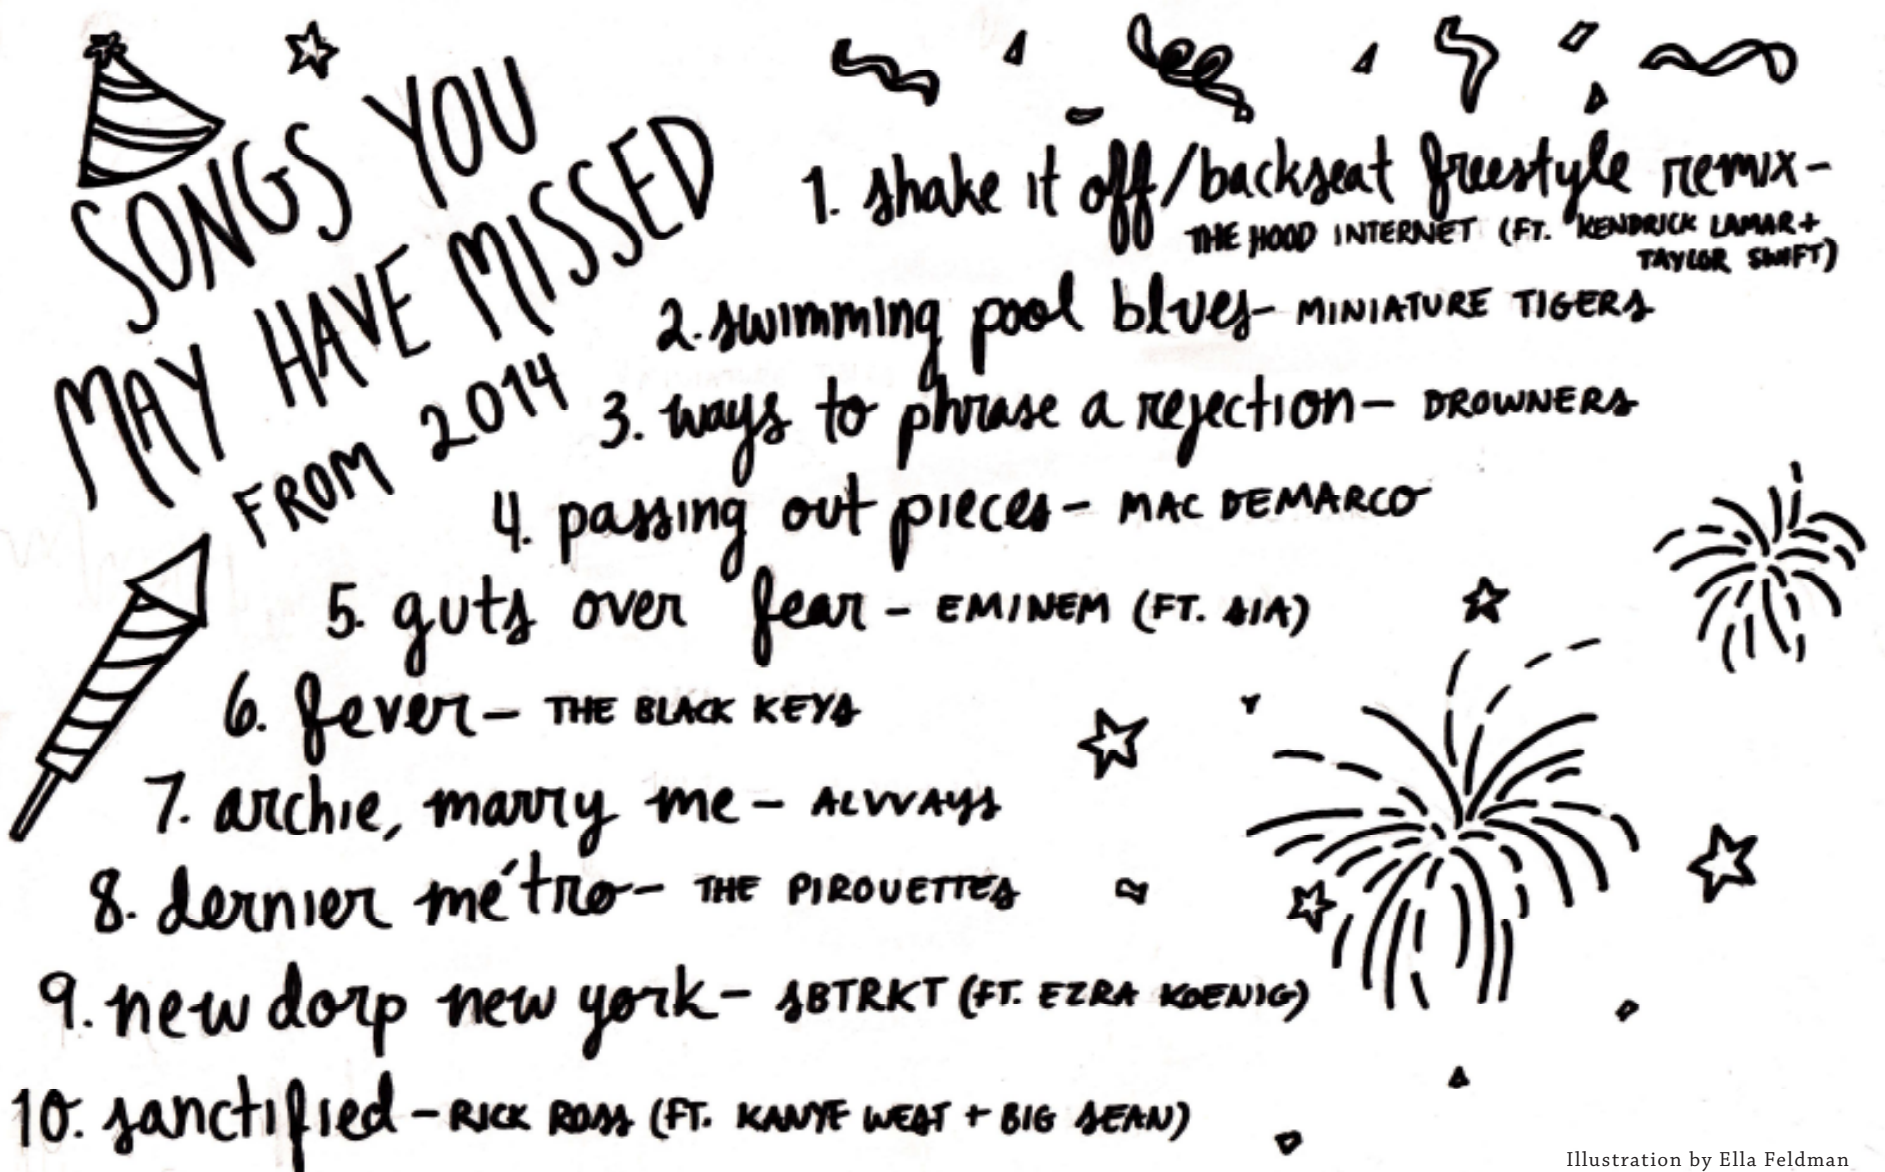 SONGS YOU
MAY HAVE MISSED
FROM 2014
1. shake it off/backseat freestyle remix-
THE HOOD INTERNET (FT. KENDRICK LAMAR +
TAYLOR SWIFT)
2. swimming pool blues- MINIATURE TIGERS
3. ways to phrase a rejection- DROWNERS
4. passing out pieces- MAC DEMARCO
5. guts over fear- EMINEM (FT. SIA)
6. fever- THE BLACK KEYS
7. archie, marry me- ALVVAYS
8. dernier métro- THE PIROUETTES
9. new dorp new york- SBTRKT (FT. EZRA KOENIG)
10. sanctified- RICK ROSS (FT. KANYE WEST + BIG SEAN)
Illustration by Ella Feldman